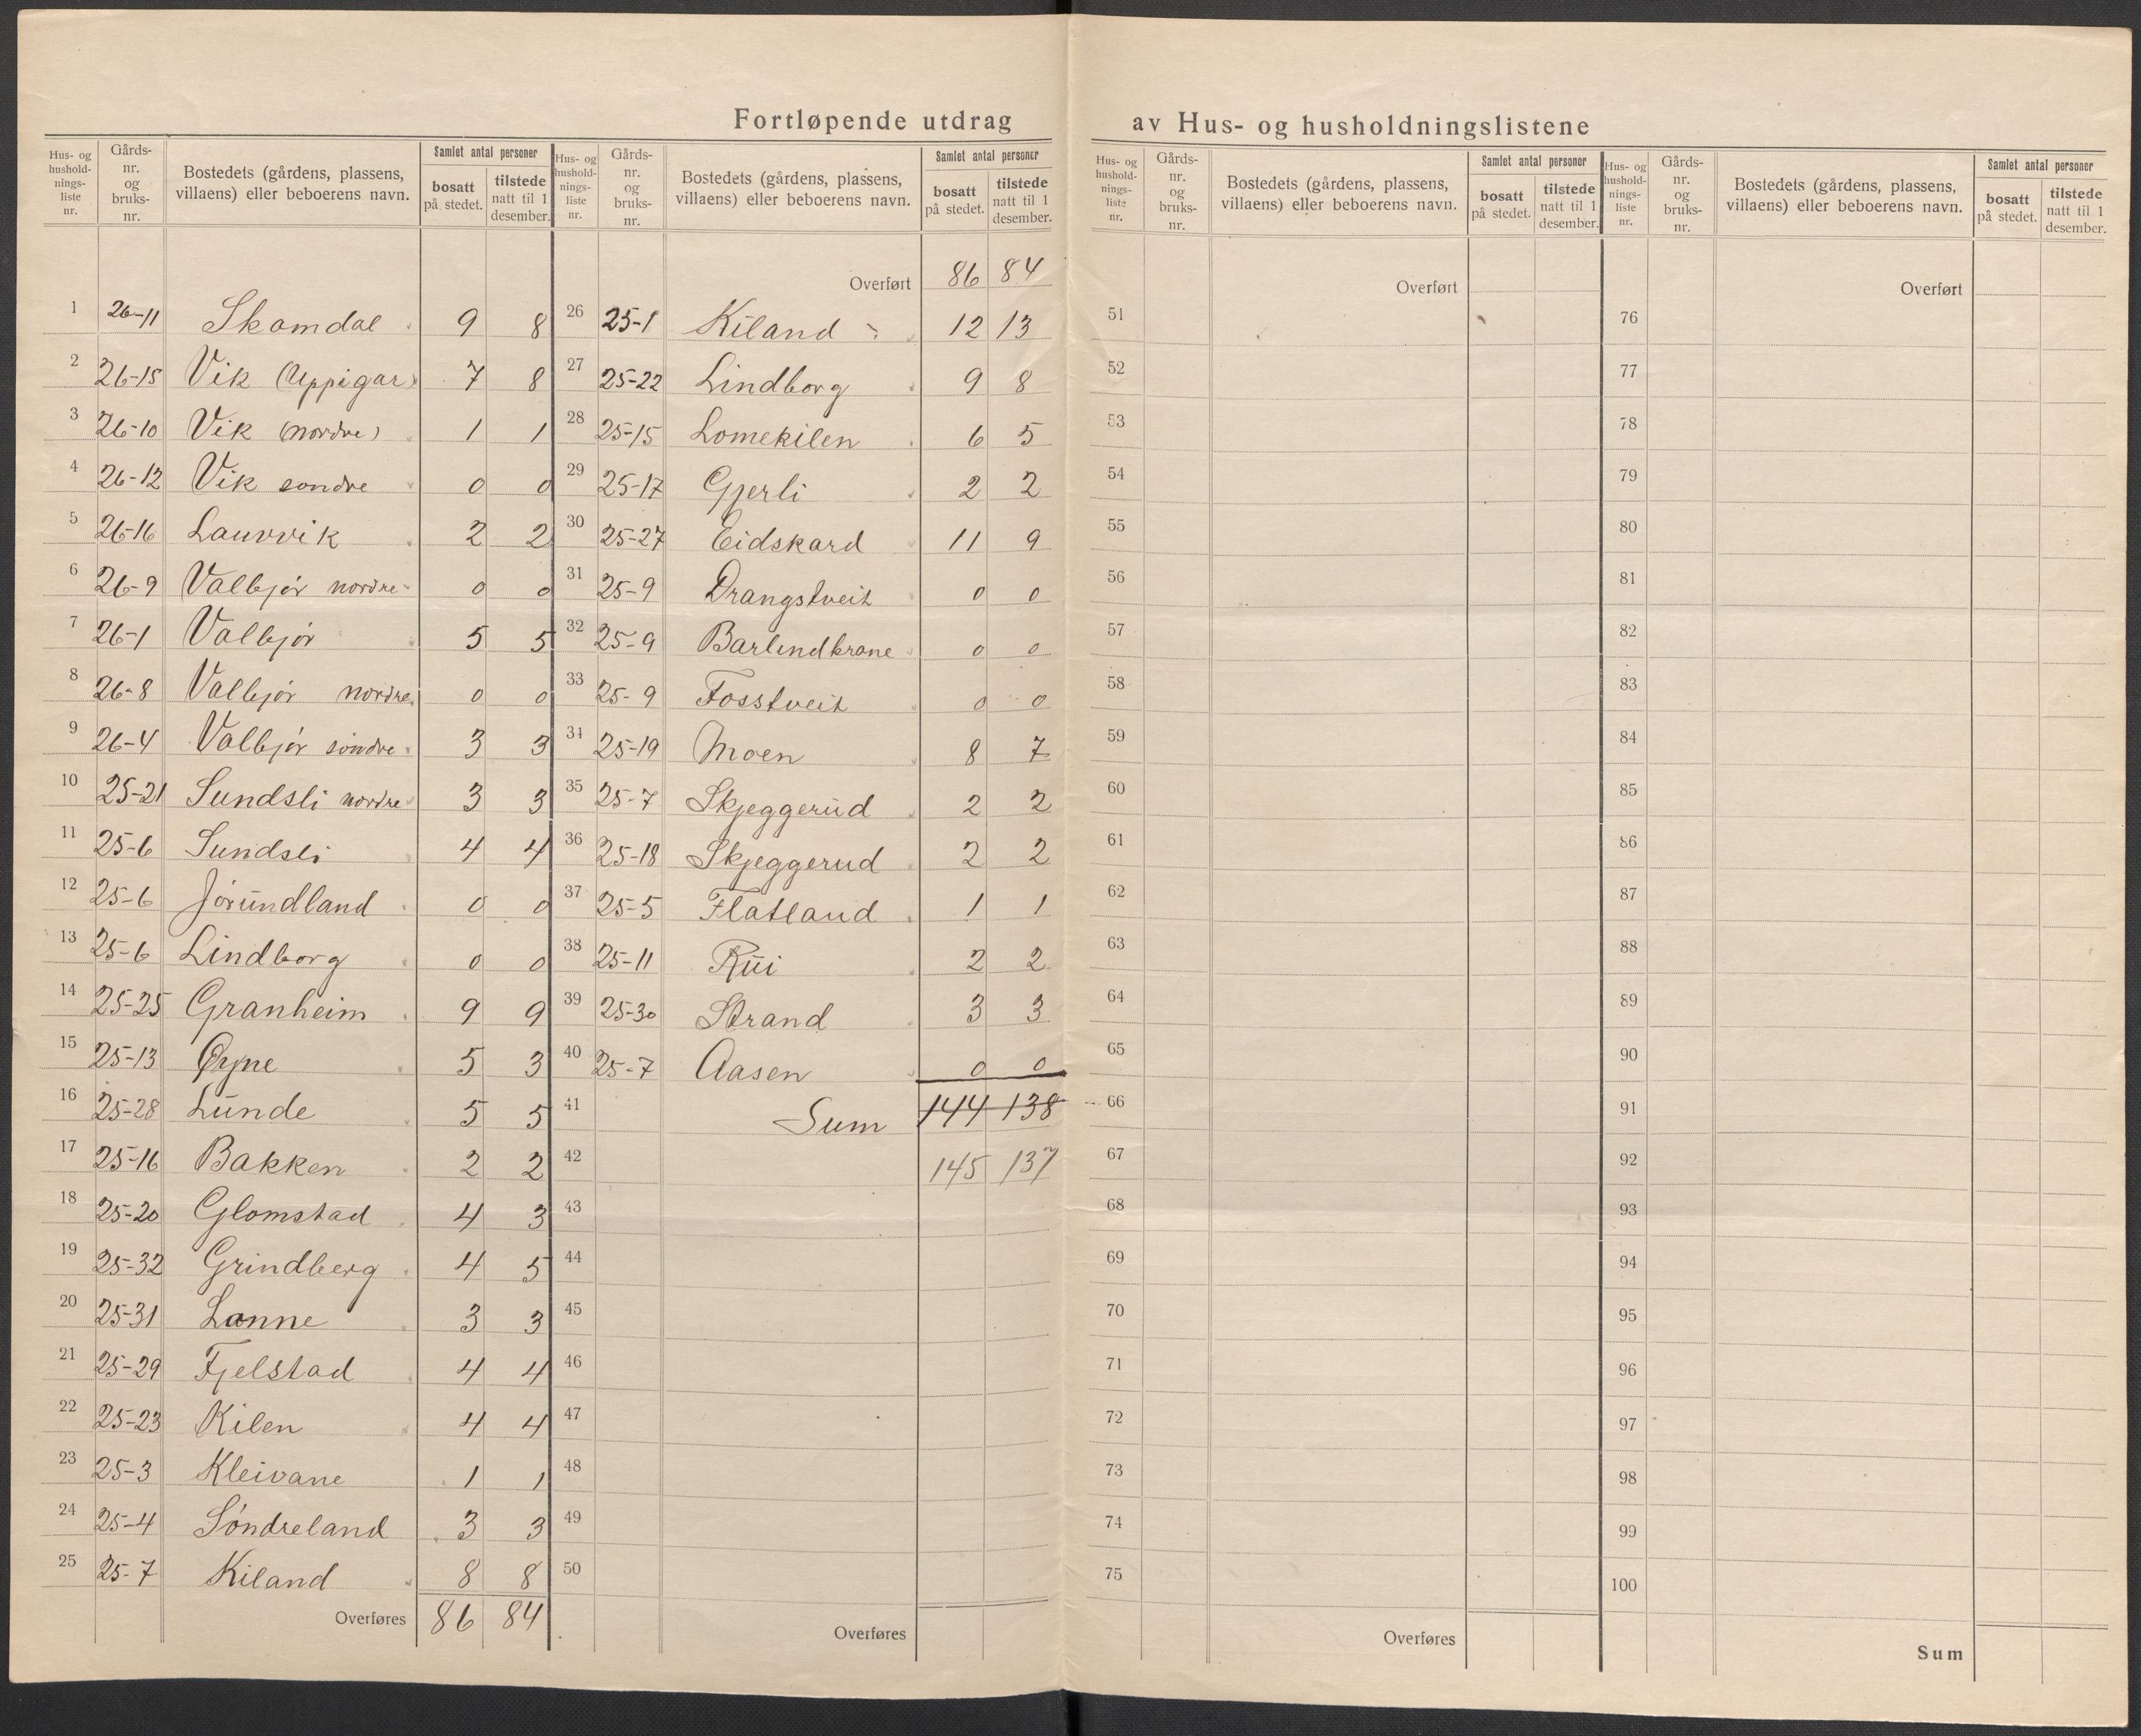 Fortløpende utdrag av Hus- og husholdningslistene
Hus- og hushold-nings-liste nr. Gårds-nr. og bruks-nr. Bostedets (gårdens, plassens, villaens) eller beboerens navn. Samlet antal personer bosatt på stedet. tilstede natt til 1 desember.
1 26-11 Skomdal 9 8
2 26-15 Vik (Uppigar) 7 8
3 26-10 Vik (nordre) 1 1
4 26-12 Vik søndre 0 0
5 26-16 Lauvvik 2 2
6 26-9 Valbjør nordre 0 0
7 26-1 Valbjør 5 5
8 26-8 Valbjør nordre 0 0
9 26-4 Valbjør søndre 3 3
10 25-21 Sundsli nordre 3 3
11 25-6 Sundsli 4 4
12 25-6 Jørundland 0 0
13 25-6 Lindborg 0 0
14 25-25 Granheim 9 9
15 25-13 Øyne 5 3
16 25-28 Lunde 5 5
17 25-16 Bakken 2 2
18 25-20 Glomstad 4 3
19 25-32 Grindberg 4 5
20 25-31 Lønne 3 3
21 25-29 Fjelstad 4 4
22 25-23 Kilen 4 4
23 25-3 Kleivane 1 1
24 25-4 Søndreland 3 3
25 25-7 Kiland 8 8
Overføres 86 84
Hus- og hushold-nings-liste nr. Gårds-nr. og bruks-nr. Bostedets (gårdens, plassens, villaens) eller beboerens navn. Samlet antal personer bosatt på stedet. tilstede natt til 1 desember.
Overført 86 84
26 25-1 Kiland 12 13
27 25-22 Lindborg 9 8
28 25-15 Lomekilen 6 5
29 25-17 Gjerli 2 2
30 25-27 Eidskard 11 9
31 25-9 Drangstveit 0 0
32 25-9 Barlindkrone 0 0
33 25-9 Fosstveit 0 0
34 25-19 Moen 8 7
35 25-7 Skjeggerud 2 2
36 25-18 Skjeggerud 2 2
37 25-5 Flatland 1 1
38 25-11 Rui 2 2
39 25-30 Strand 3 3
40 25-7 Aasen 0 0
41 Sum 144 138
42 145 137
43
44
45
46
47
48
49
50
Overføres
Hus- og hushold-nings-liste nr. Gårds-nr. og bruks-nr. Bostedets (gårdens, plassens, villaens) eller beboerens navn. Samlet antal personer bosatt på stedet. tilstede natt til 1 desember.
Overført
51
52
53
54
55
56
57
58
59
60
61
62
63
64
65
66
67
68
69
70
71
72
73
74
75
Overføres
Hus- og hushold-nings-liste nr. Gårds-nr. og bruks-nr. Bostedets (gårdens, plassens, villaens) eller beboerens navn. Samlet antal personer bosatt på stedet. tilstede natt til 1 desember.
Overført
76
77
78
79
80
81
82
83
84
85
86
87
88
89
90
91
92
93
94
95
96
97
98
99
100
Sum